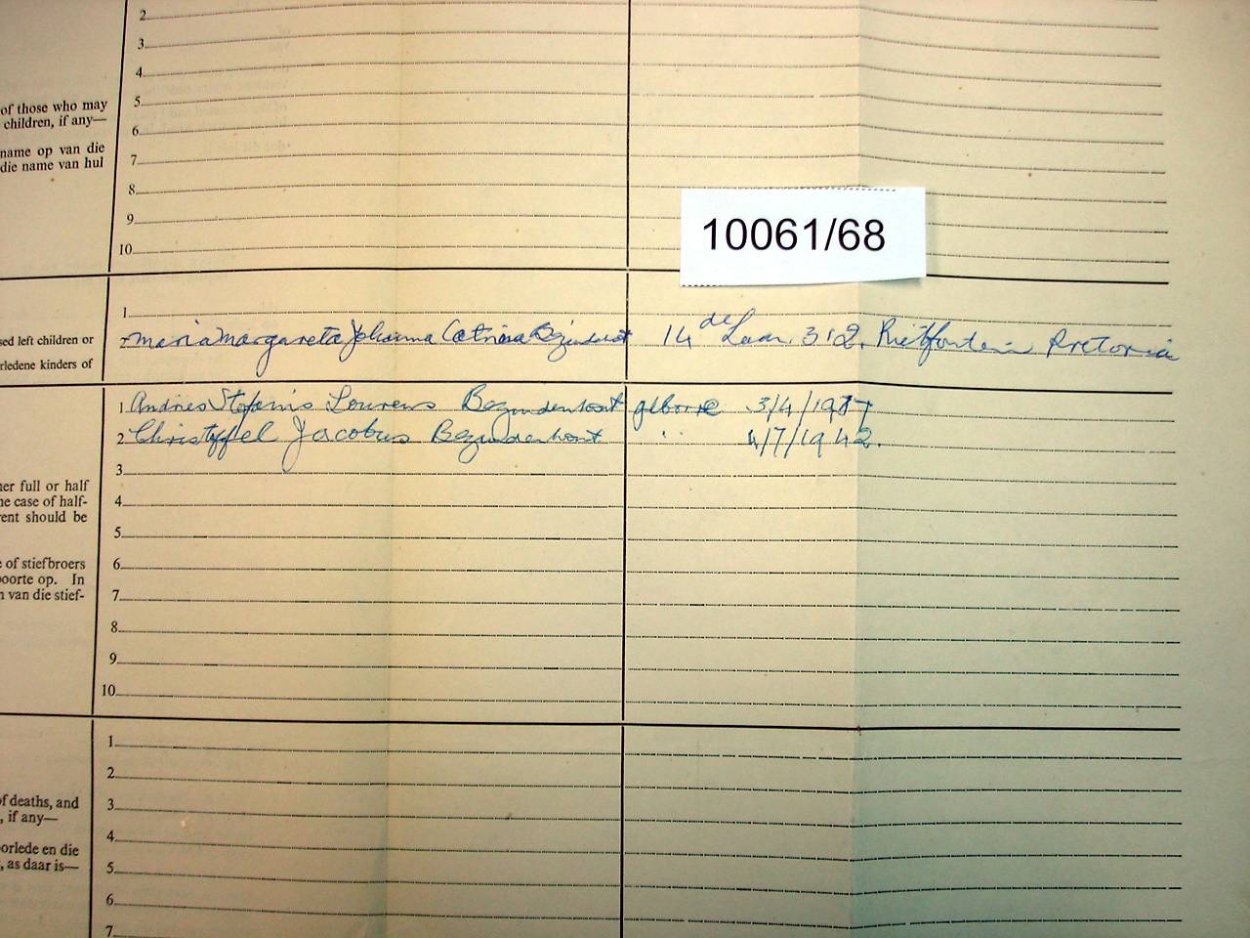 2.
3.
4.
5.
6.
7.
8.
9.
10.
of those who may
children, if any—
name op van die
die name van hul
10061/68
1.
sed left children or
rledene kinders of
2. Maria Margareta Johanna Catrina Bezuidenhout 14de Laan 312, Rietfontein Pretoria
1 Andries Stefanis Lourens Bezuidenhout gebore 3/4/19
2. Christoffel Jacobus Bezuidenhout " 4/7/1942.
3.
4.
5.
6.
7.
8.
9.
10.
er full or half
e case of half-
ent should be
e of stiefbroers
oorte op. In
n van die stief-
1.
2.
3.
4.
5.
6.
7.
f deaths, and
, if any—
orlede en die
, as daar is—